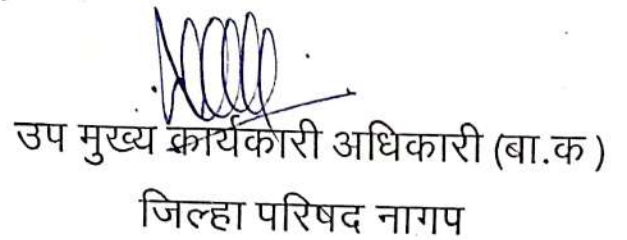 उप मुख्य कार्यकारी अधिकारी (बा.क )
जिल्हा परिषद नागप